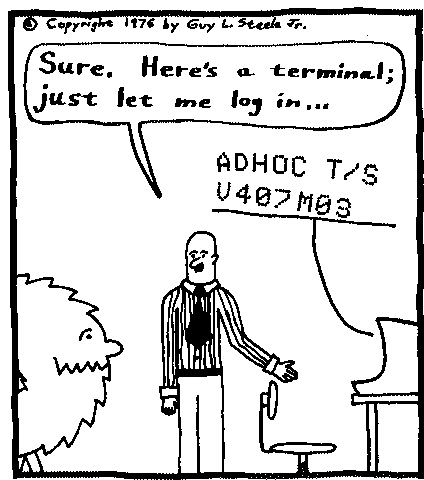 © Copyright 1976 by Guy L. Steele Jr.
Sure. Here's a terminal;
just let me log in...
ADHOC T/S
V407M03